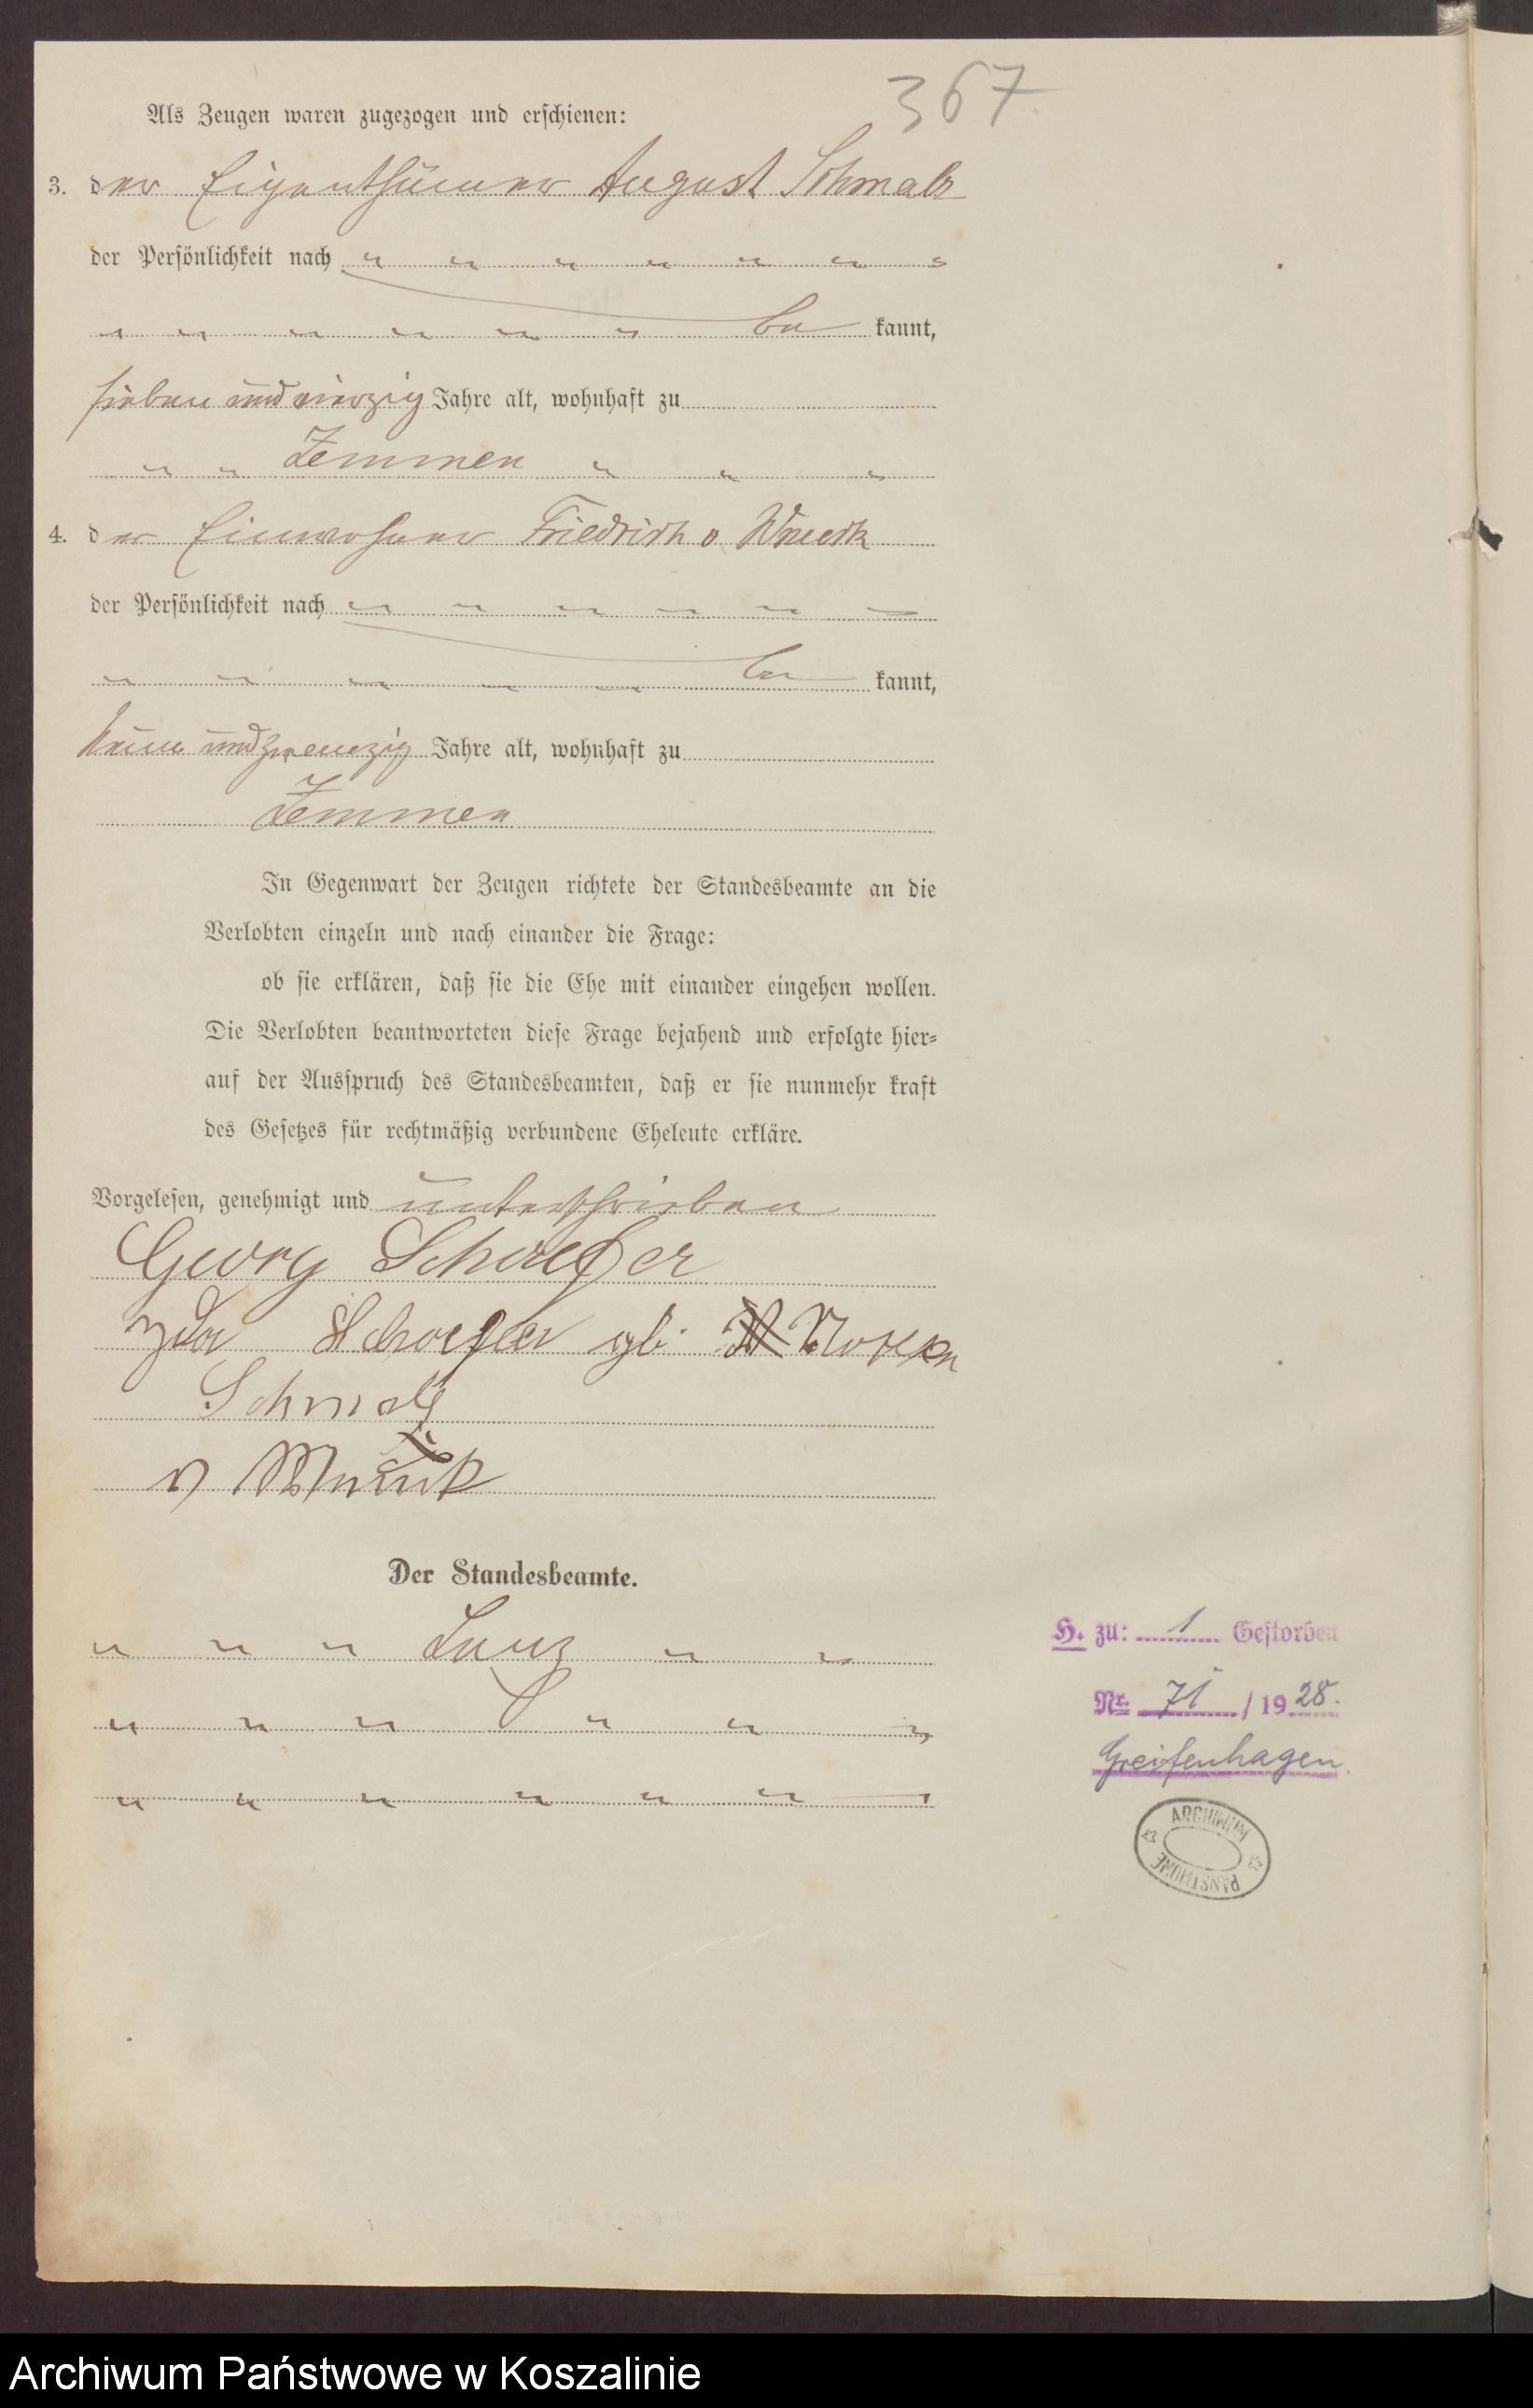 367
Als Zeugen waren zugezogen und erschienen:
3. der Eigenthümer August Schmalz
der Persönlichkeit nach
be kannt,
sieben und vierzig Jahre alt, wohnhaft zu
Zemmen
4. der Einwohner Friedrich v
der Persönlichkeit nach
be kannt,
neun und zwanzig Jahre alt, wohnhaft zu
Zemmen
In Gegenwart der Zeugen richtete der Standesbeamte an die
Verlobten einzeln und nach einander die Frage:
ob sie erklären, daß sie die Ehe mit einander eingehen wollen.
Die Verlobten beantworteten diese Frage bejahend und erfolgte hier=
auf der Ausspruch des Standesbeamten, daß er sie nunmehr kraft
des Gesetzes für rechtmäßig verbundene Eheleute erkläre.
Vorgelesen, genehmigt und unterschrieben
Georg Schaefer
Schaefer gb.
Schmalz
v
Der Standesbeamte.
H. zu: 1 Gestorben
Nr. 71 / 19 28.
Greifenhagen
ARCHIWUM
PAŃSTWOWE
Archiwum Państwowe w Koszalinie